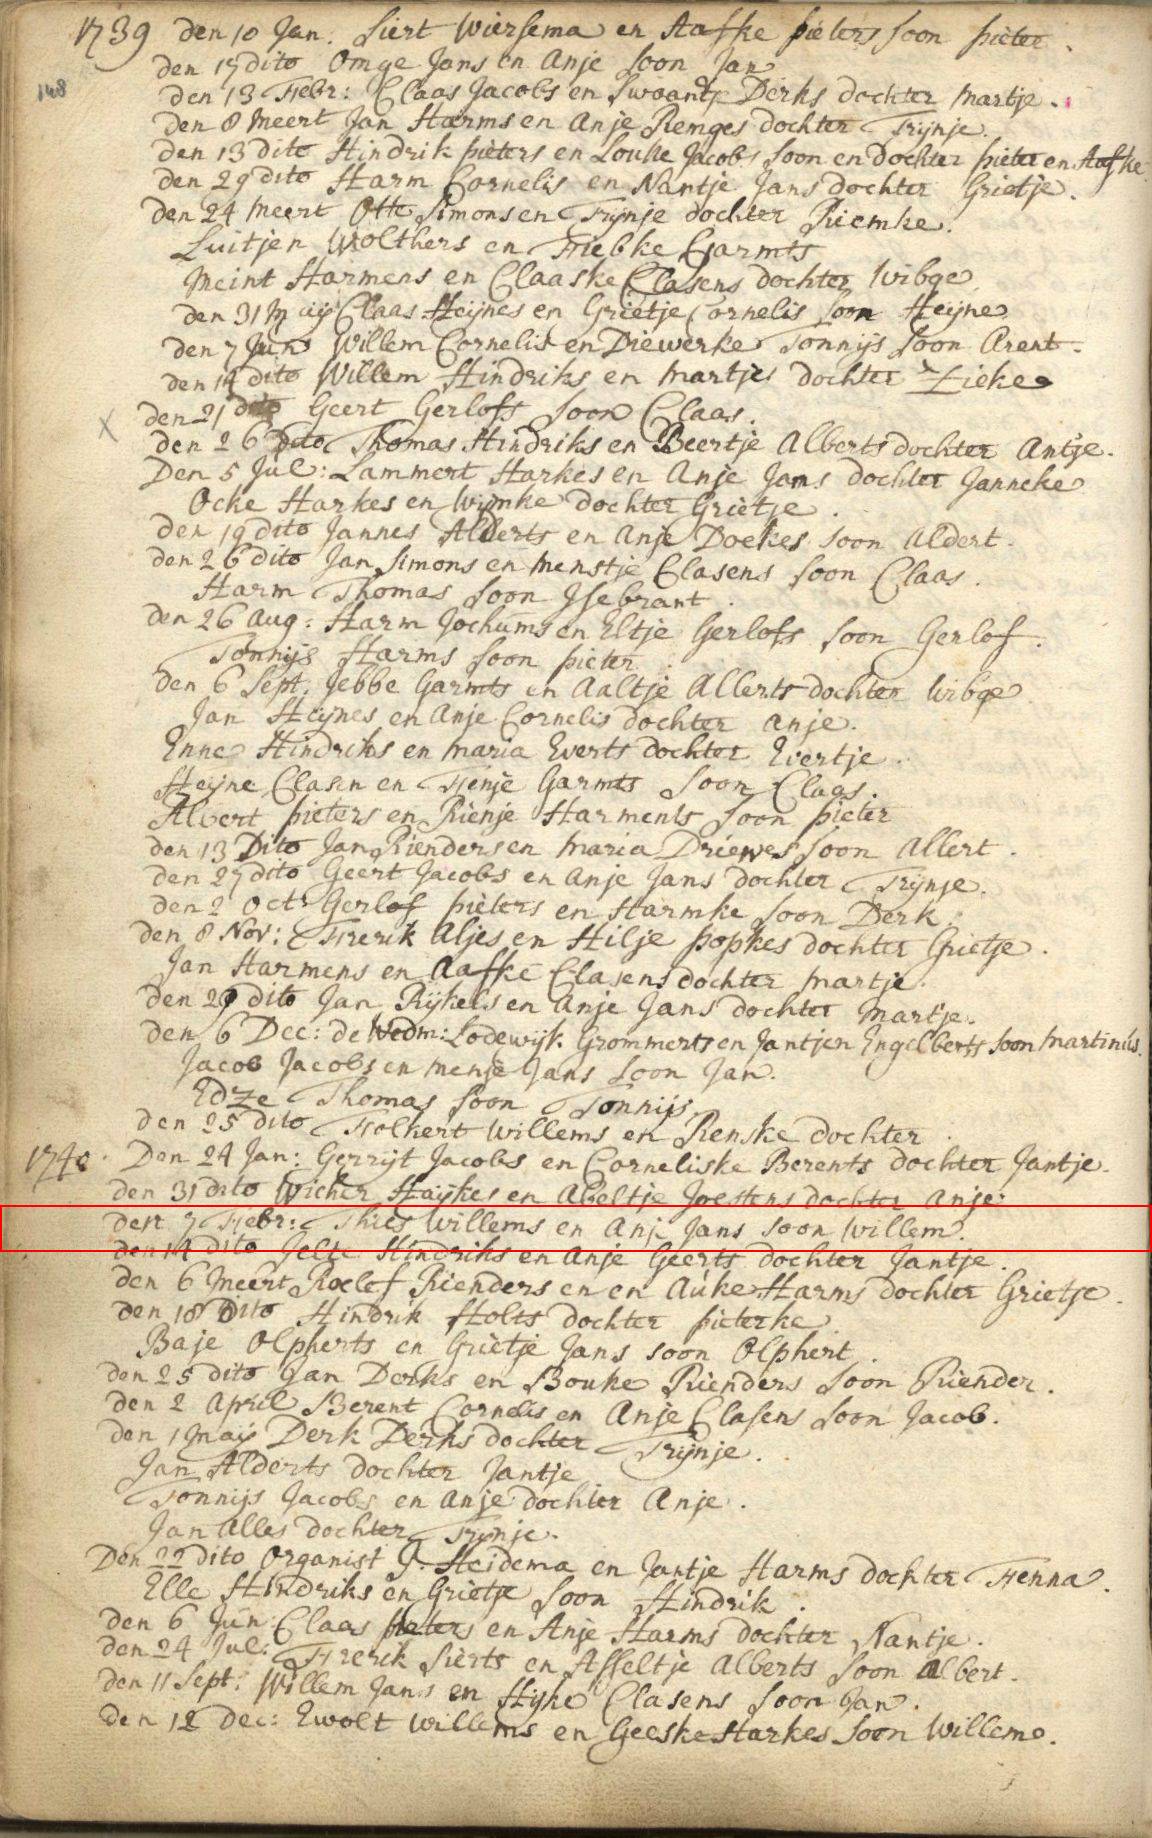 1739 den 10 Jan. Siert Wiersema en Aafke pieters soon pieter.
148
den 17 dito Omge Jans en Anje soon Jan
den 13 Febr: Claas Jacobs en Swaantje Derks dochter Martje.
den 8 Meert Jan Harms en Anje Remges dochter Trijnje.
den 13 dito Hindrik pieters en Louke Jacobs soon en dochter pieter en Aafke
den 29 dito Harm Cornelis en Nantje Jans dochter Grietje.
den 24 Meert Otte Simons en Trijnje dochter Riemke.
Luitjen Wolthers en Fiebke Garmts
Meint Harmens en Claaske Clasens dochter Wibge
den 31 Maij Claas Heijnes en Grietje Cornelis soon Heijne
den 7 Jun Willem Cornelis en Diewerke Tonnijs soon Arent.
den 14 dito Willem Hindriks en Martjes dochter Zieke
den 21 dito Geert Gerlofs soon Claas.
den 26 Dito Thomas Hindriks en Beertje Alberts dochter Antje.
Den 5 Jul: Lammert Harkes en Anje Jans dochter Janneke
Ocke Harkes en Wijmke dochter Grietje.
den 19 dito Jannes Alderts en Anje Doekes soon Aldert.
den 26 dito Jan Simons en Menstje Clasens soon Claas.
Harm Thomas soon Jsebrant.
den 26 Aug: Harm Jochums en Eltje Gerlofs soon Gerlof.
Tonnijs Harms soon pieter.
den 6 Sept. Jebbe Garmts en Aaltje Allerts dochter Wibge
Jan Heijnes en Anje Cornelis dochter Anje.
Enne Hindriks en Maria Everts dochter Evertje.
Heijne Clasen en Fenje Garmts soon Claas.
Albert pieters en Rienje Harments soon pieter
den 13 Dito Jan Rienders en Maria Driewes soon Allert.
den 27 dito Geert Jacobs en Anje Jans dochter Trijnje.
den 2 Oct. Gerlof pieters en Harmke soon Derk.
den 8 Nov: Frerik Aljes en Hilje popkes dochter Grietje.
Jan Harmens en Aafke Clasens dochter Martje.
den 29 dito Jan Rijkels en Anje Jans dochter Martje.
den 6 Dec: de Wedm: Lodewijk Grommerts en Jantjen Engelberts soon Martinus.
Jacob Jacobs en Menje Jans soon Jan.
Edze Thomas soon Tonnijs
den 25 dito Folkert Willems en Renske dochter.
1740 Den 24 Jan: Gerrijt Jacobs en Corneliske Berents dochter Jantje.
den 31 dito Wicher Haijkes en Abeltje Joestens dochter Anje
den 7 Febr: Thies Willems en Anje Jans soon Willem.
den 14 dito Jelte Hindriks en Anje Geerts dochter Jantje.
den 6 Meert Roelef Rienders en en Auke Harms dochter Grietje.
den 18 Dito Hindrik Holts dochter pieterke
Baje Olpherts en Grietje Jans soon Olphert.
den 25 dito Jan Derks en Bouke Rienders soon Riender.
den 2 April Berent Cornelis en Anje Clasens soon Jacob.
den 1 Maij Derk Derks dochter Trijnje.
Jan Alderts dochter Jantje
Tonnijs Jacobs en Anje dochter Anje.
Jan Alles dochter Trijnje.
Den 22 dito Organist J. Heidema en Jantje Harms dochter Fenna.
Elle Hindriks en Grietje soon Hindrik.
den 6 Jun: Claas pieters en Anje Harms dochter Nantje.
den 24 Jul: Frerik Sierts en Affeltje Alberts soon Albert.
den 11 Sept: Willem Jans en Hijke Clasens soon Jan.
den 12 Dec: Ewolt Willems en Geeske Harkes soon Willem.